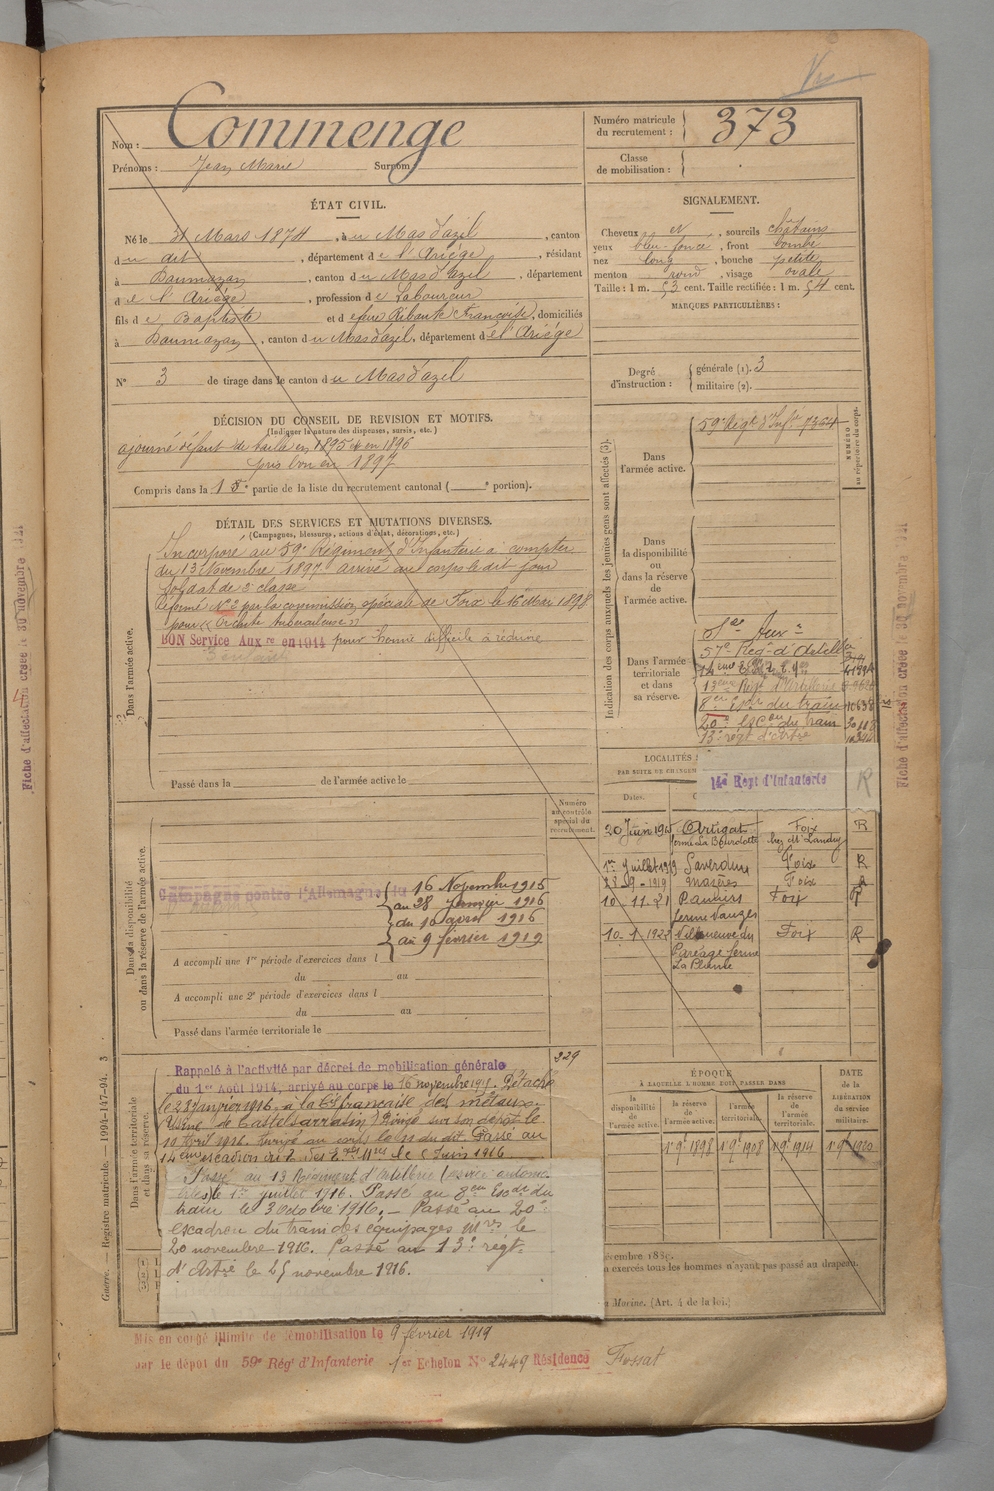 Nom : Commenge
Prénoms : Jean Marie Surnom :
Numéro matricule du recrutement : 373
Classe de mobilisation :
ÉTAT CIVIL.
Né le 31 Mars 1874, à u Mas d'azil, canton
d u dit, département d e l'Ariège, résidant
à Daumazan, canton d u Mas d'Azil, département
d e l'Ariège, profession d e Laboureur
fils d e Baptiste et d e Ribaute Françoise, domiciliés
à Daumazan, canton d u Mas d'azil, département d e l'Ariège
N° 3 de tirage dans le canton d u Mas d'azil
SIGNALEMENT.
Cheveux et, sourcils châtains
yeux bleu-foncé, front bombé
nez long, bouche petite
menton rond, visage ovale
Taille : 1 m. 53 cent. Taille rectifiée : 1 m. 54 cent.
MARQUES PARTICULIÈRES :
Degré d'instruction : générale (1). 3
militaire (2).
DÉCISION DU CONSEIL DE REVISION ET MOTIFS.
(Indiquer la nature des dispenses, sursis, etc.)
ajourné défaut de taille en 1895 et en 1896
pris bon en 1897
Compris dans la 1e partie de la liste du recrutement cantonal ( e portion).
DÉTAIL DES SERVICES ET MUTATIONS DIVERSES.
(Campagnes, blessures, actions d'éclat, décorations, etc.)
Dans l'armée active.
Incorporé au 59e Régiment d'Infanterie à compter
du 13 Novembre 1897 arrivé au corps le dit jour
soldat de 2e classe
Réformé N° 2 par la commission spéciale de Foix le 16 Mars 1898
pour « Orchite tuberculeuse »
BON Service Auxre en 1914 pour hernie difficile à réduire
3 enfants
Passé dans la de l'armée active le
Numéro au contrôle spécial du recrutement.
Dans la disponibilité ou dans la réserve de l'armée active.
Campagne contre l'Allemagne du 16 Novembre 1915
au 28 janvier 1916
du 10 avril 1916
au 9 février 1919
A accompli une 1re période d'exercices dans l
du au
A accompli une 2e période d'exercices dans l
du au
Passé dans l'armée territoriale le
Dans l'armée territoriale et dans sa réserve.
329
Rappelé à l'activité par décret de mobilisation générale
du 1er Août 1914, arrivé au corps le 16 novembre 1915. Détaché
le 28 janvier 1916 à la Cie française des métaux
Usine de Castelsarrasin. Dirigé sur son dépôt le
10 Avril 1916. Arrivé au corps le 11 du dit. Passé au
14ème escadron du train des Eqges Mres le 5 Juin 1916
Passé au 13 Régiment d'Artillerie (service automo-
biles) le 1er juillet 1916. Passé au 8em Escdr du
train le 3 Octobre 1916. – Passé au 20e
escadron du train des équipages Mres le
20 novembre 1916. Passé au 13e régt
d'Artie le 25 novembre 1916.
Mis en congé illimité de démobilisation le 9 février 1919
par le dépôt du 59e Régt d'Infanterie 1er Echelon N° 2449 Résidence Fossat
Indication des corps auxquels les jeunes gens sont affectés (3).
NUMÉRO au répertoire du corps.
Dans l'armée active.
59e Régt d'Infie 7364
Dans la disponibilité ou dans la réserve de l'armée active.
Dans l'armée territoriale et dans sa réserve.
Sce Auxre
57e Reg d'Artellie
13ème Régt d'Artillerie
8em Escdr du train 10638
20e Escon du train 30118
13e régt d'artie
LOCALITÉS
PAR SUITE DE CHANGEM
14e Regt d'Infanterie
R
Dates.
20 Juin 1905 Artigat Foix R
ferme La Bourdette chez Mr Landry
1er Juillet 1919 Saverdun Foix R
28-9-1919 Mazères Foix R
10 11 21 Pamiers Foix R
ferme Vauges
10 1 1922 Villeneuve du Foix R
Paréage ferme
La Plaine
ÉPOQUE
À LAQUELLE L'HOMME DOIT PASSER DANS
la disponibilité de l'armée active.
la réserve de l'armée active.
l'armée territoriale.
la réserve de l'armée territoriale.
DATE de la LIBÉRATION du service militaire.
1er 9bre 1898 1er 9bre 1908 1er 9bre 1914 1er 9bre 1920
écembre 188
n exercés tous les hommes n'ayant pas passé au drapeau.
Marine. (Art. 4 de la loi.)
Fiche d'affectation créée le 30 novembre 1921
Fiche d'affectation créée le 30 novembre 1921
Guerre. — Registre matricule. — 1994-147-94. 3